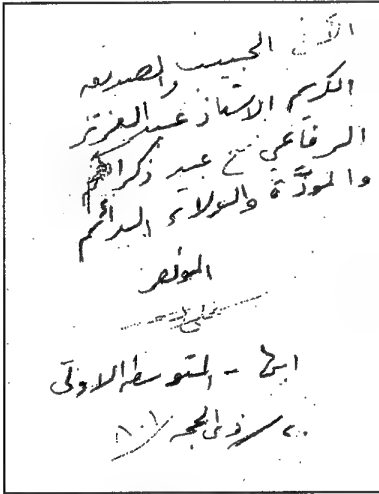 الأخ الحبيب والصديق
الكريم الاستاذ عبدالعزيز
الرفاعي مع عبير ذكراكم
والمودَّة والولاء الدائم
المؤلف
ابها - المتوسطة الاولى
٢٠/ذي الحجه/